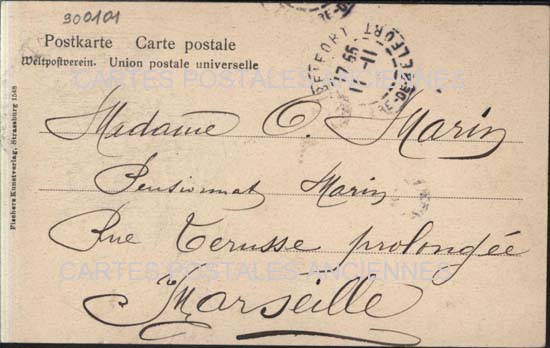 900101
Postkarte Carte postale
Weltpostverein. Union postale universelle
BELFORT
17 55
11 - 11
Fischers Kunstverlag, Strassburg 1548
Madame O. Marin
Pensionnat Marin
Rue Terusse prolongée
Marseille
CARTES POSTALES ANCIENNES
CARTES POSTALES ANCIENNES